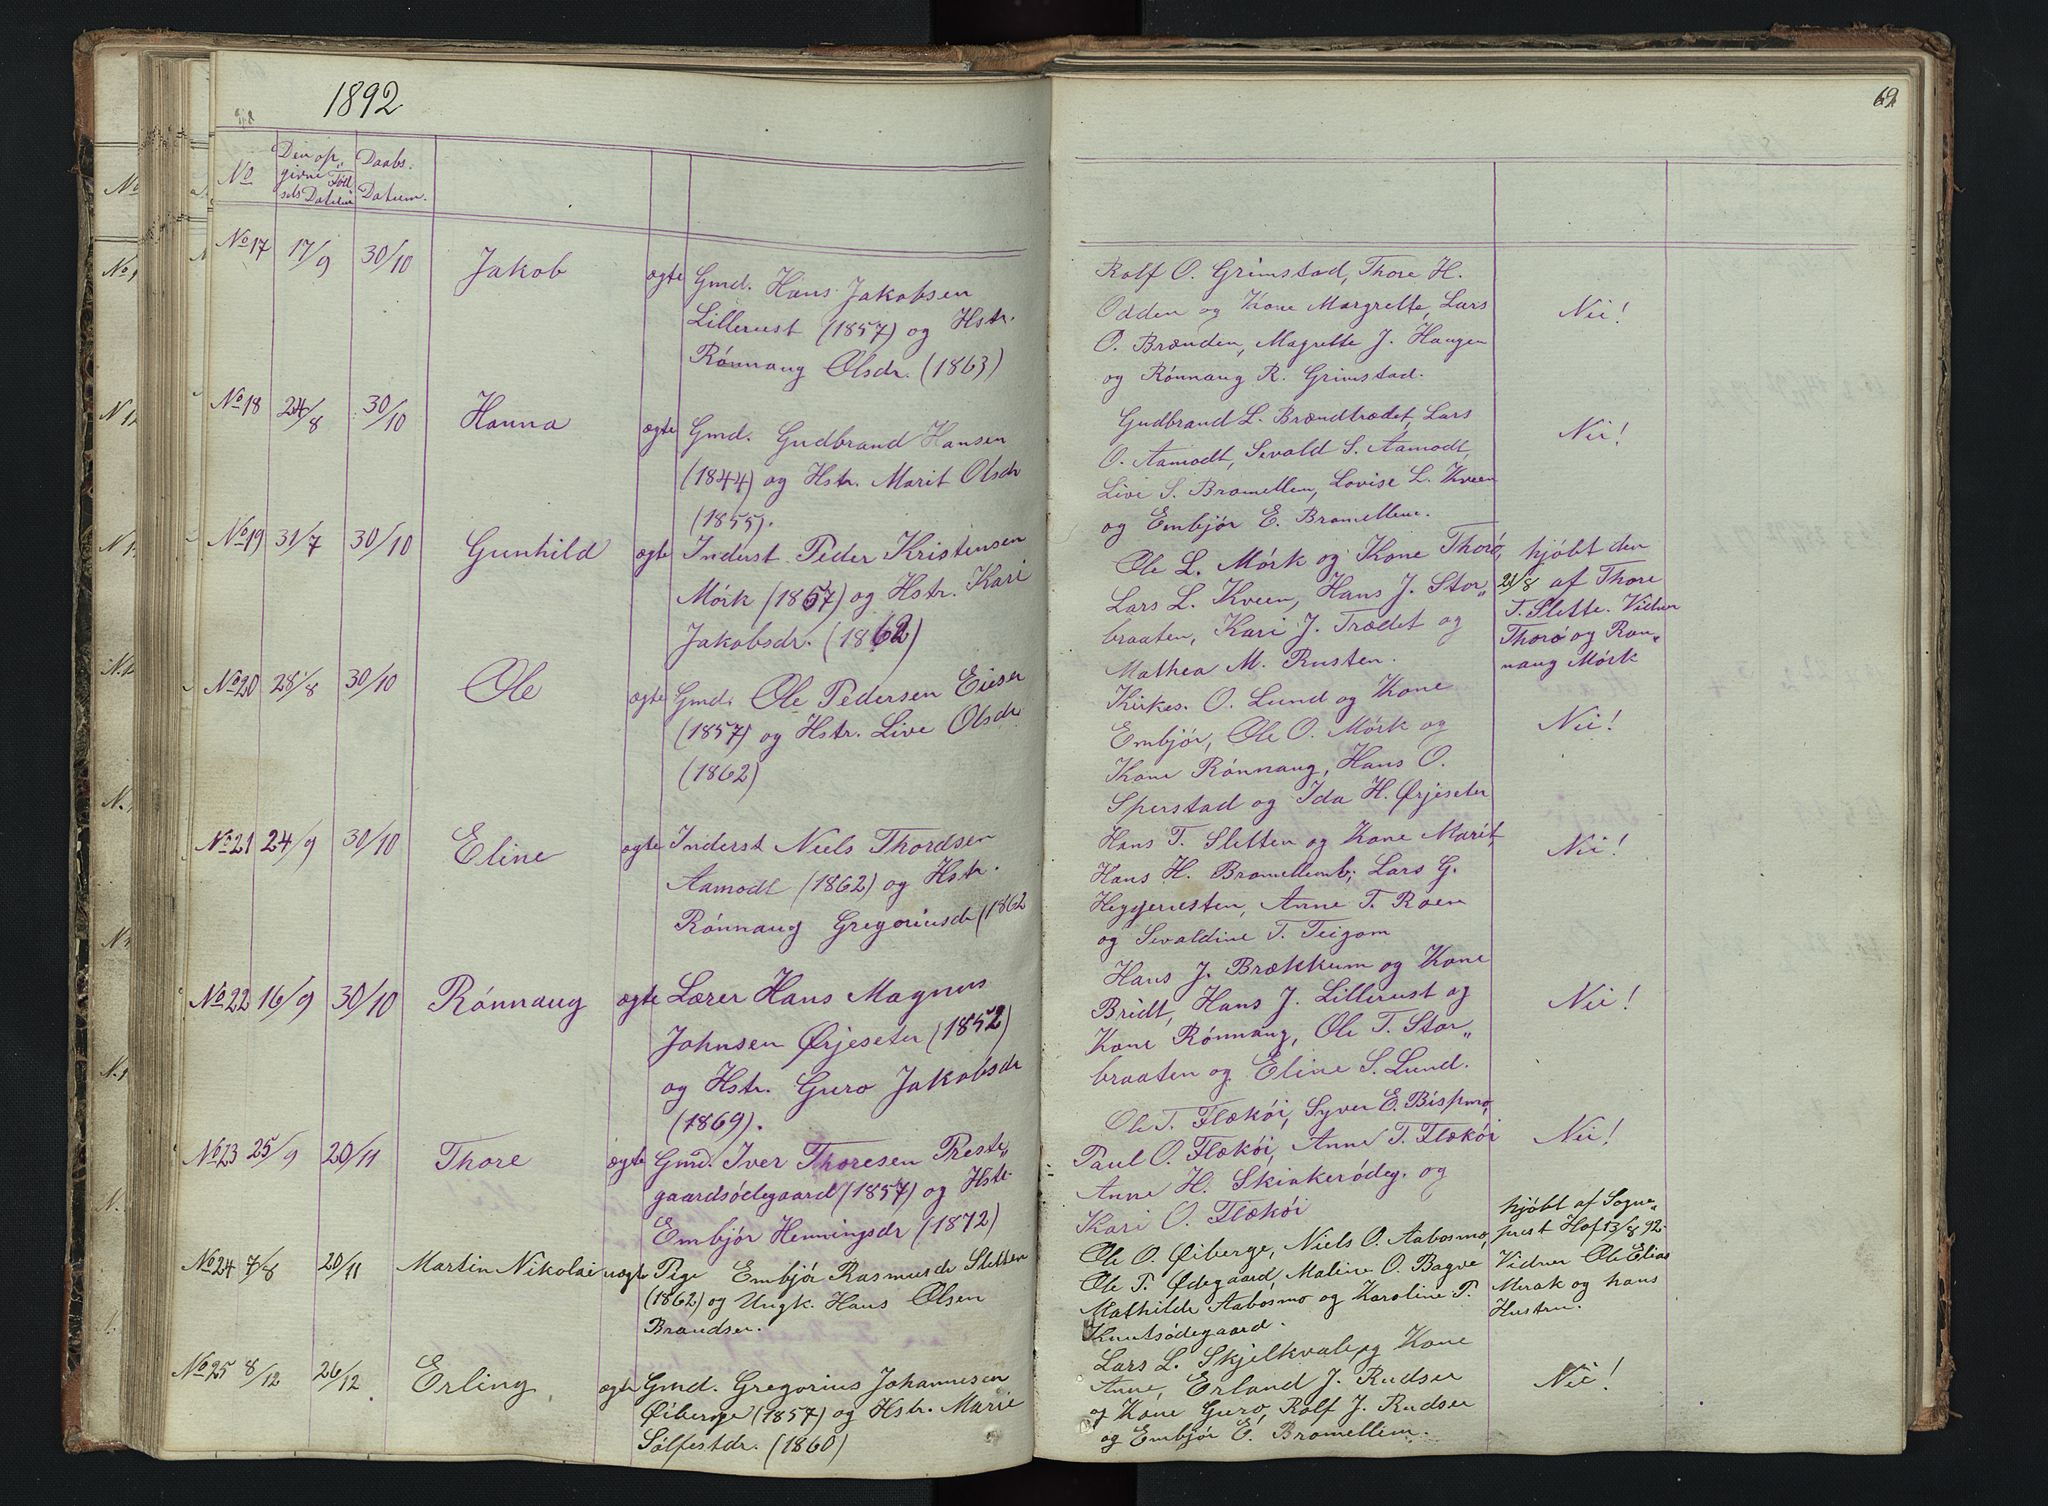 1892
69
No
Den op„
givne Fød„
sels Datum
Daabs.
Datum.
No 17 17/9 30/10 Jakob ægte Gmd. Hans Jakobsen
Lillerust (1857) og Hstr.
Rónnaug Olsdr. (1863)
Rolf O. Grimstad, Thore H.
Odden og Kone Margrette, Lars
O. Brænden, Magrette J. Haugen
og Rónnaug R. Grimstad.
Nei!
No 18 24/8 30/10 Hanna ægte Gmd. Gudbrand Hansen
(1844) og Hstr. Marit Olsdr
(1855).
Gudbrand L. Brændtrædet, Lars
O. Aamodt, Sevald S. Aamodt,
Live S. Bromellem, Lovise L. Kveen
og Embjór E. Bromellem.
Nei!
No 19 31/7 30/10 Gunhild ægte Inderst Peder Kristensen
Mórk (1857) og Hstr. Kari
Jakobsdr. (1862)
Ole L. Mórk og Kone Thoró,
Lars L. Kveen, Hans J. Stor„
braaten, Kari J. Trædet og
Mathea M. Rusten.
hjóbt den
21/8 af Thore
T. Slette. Vidner
Thoró og Ron„
naug Mórk
No 20 28/8 30/10 Ole ægte Gmd. Ole Pedersen Eiesen
(1857) og Hstr. Live Olsdr
(1862)
Kirkes. O. Lund og Kone
Embjór, Ole O. Mórk og
Kone Rónnaug, Hans O.
Sperstad og Ida H. Ørjeseter
Nei!
No 21 24/9 30/10 Eline ægte Inderst Niels Thordsen
Aamodt (1862) og Hstr.
Rónnaug Gregoriusdr (1862
Hans T. Sletten og Kone Marit,
Hans H. Bromellemb, Lars G.
Heggerusten, Anne T. Roen
og Sevaldine T. Teigom
Nei!
No 22 16/9 30/10 Rónnaug ægte Lærer Hans Magnus
Johnsen Ørjeseter (1852)
og Hstr. Guro Jakobsdr
(1869).
Hans J. Brækkum og Kone
Bridt, Hans J. Lillerust og
Kone Rónnaug, Ole T. Stor„
braaten og Eline S. Lund.
Nei!
No 23 25/9 20/11 Thore ægte Gmd. Iver Thoresen Preste„
gaardsódegaard (1857) og Hstr.
Embjór Henningsdr (1872)
Ole T. Flækói, Syver E. Bispmo,
Paul O. Flækói, Anne T. Flækói
Anne H. Skiakeródeg. og
Kari O. Flækói
Nei!
No 24 7/8 20/11 Martin Nikolai uægte Pige Embjór Rasmusdr Sletten
(1862) og Ungk. Hans Olsen
Brandser.
Ole O. Øiberge, Niels O. Aabosmo,
Ole T. Ødegaard, Maline O. Bagve
Mathilde Aabosmo og Karoline T.
Knutsódegaard.
hjóbt af Sogne„
prest Hof 13/8 92.
Vidner Ole Elias
Merak og hans
Hustru.
No 25 8/12 26/12 Erling ægte Gmd. Gregorius Johannesen
Øiberge (1857) og Hstr. Marie
Sólfestdr. (1860)
Lars L. Skjelkvale og Kone
Anne, Erland J. Rudser
og Kone Guro, Rolf J. Rudser
og Embjór E. Bromellem.
Nei!